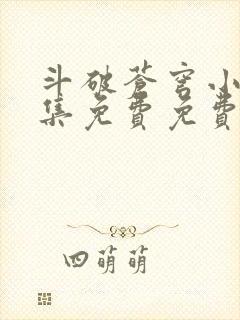 斗破苍穹小
集免费免费
四萌萌